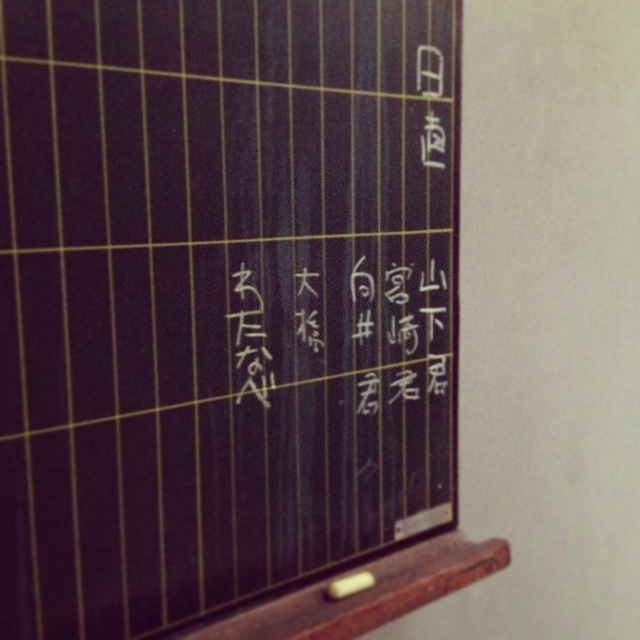 日直
山下君
宮崎君
白井君
大橋
わたなべ